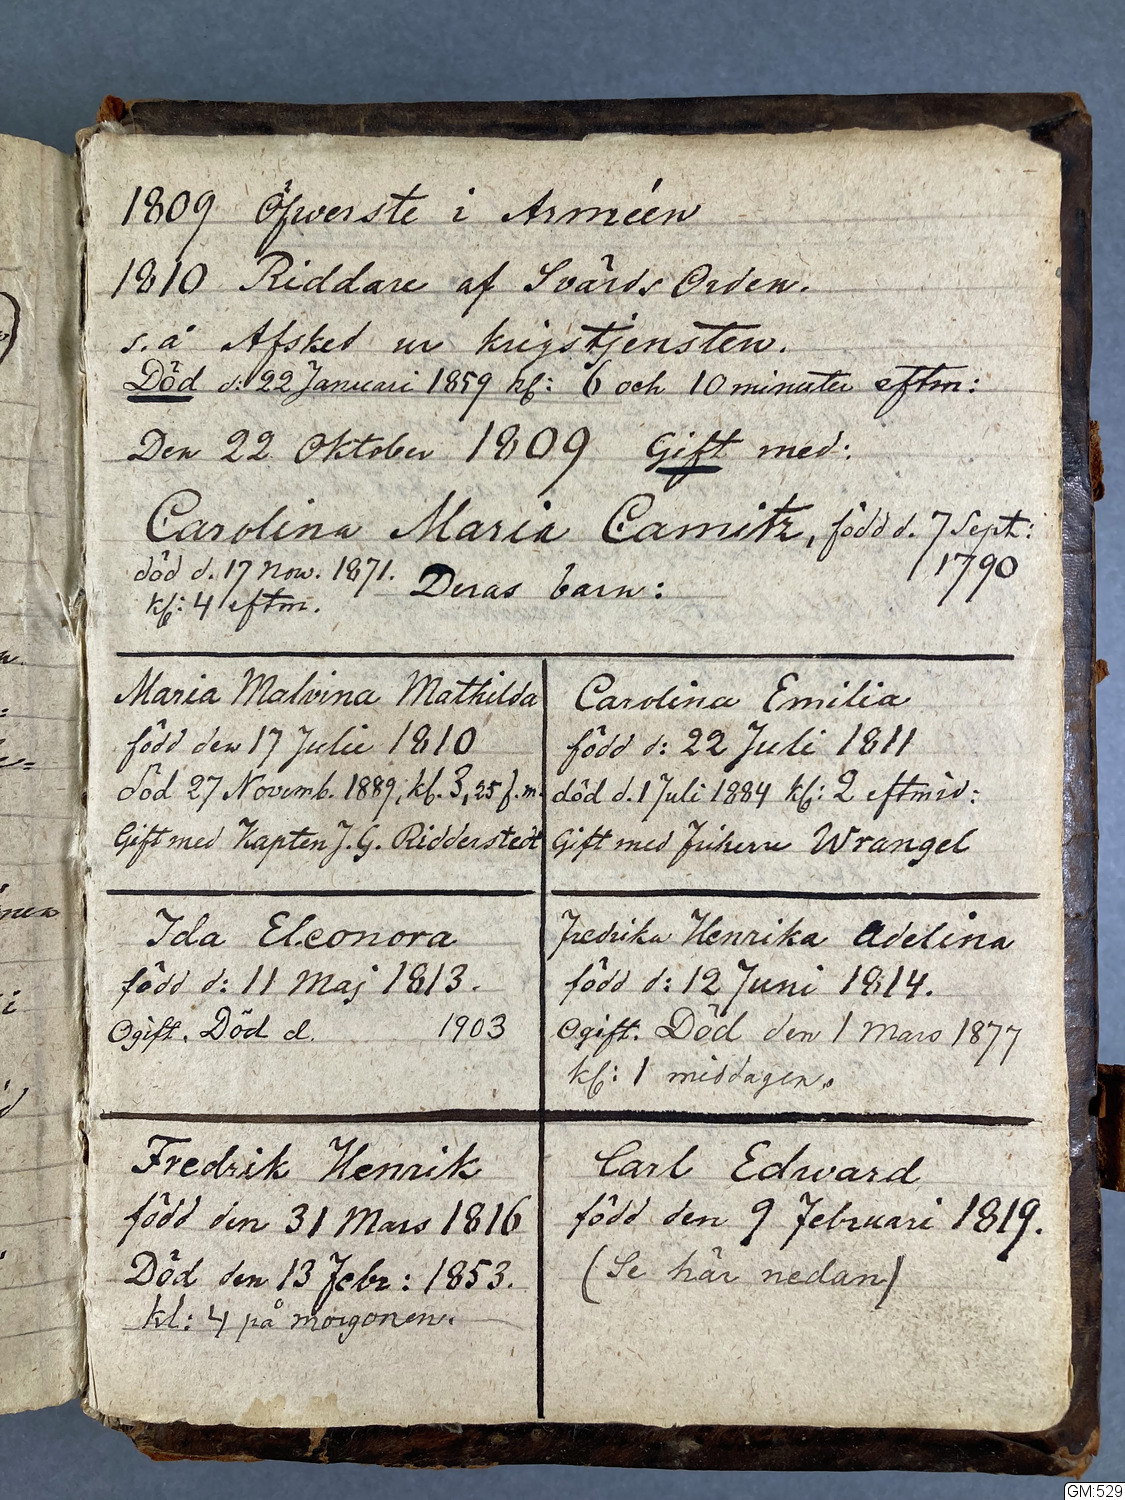 1809 Öfwerste i Arméen
1810 Riddare af Svärds Orden.
s.å Afsked ur krigstjensten.
Död d: 22 Januari 1859 kl: 6 och 10 minuter eftm:
Den 22 Oktober 1809 Gift med:
Carolina Maria Camitz, född d. 7 Sept:
1790
död d. 17 Nov. 1871.
kl: 4 eftm.
Deras barn:
Maria Malvina Mathilda
född den 17 Julie 1810
död 27 Novemb. 1889, kl. 3,25 f.m.
Gift med Kapten J. G. Ridderstedt
Carolina Emilia
född d: 22 Juli 1811
död d. 1 Juli 1884 kl: 2 eftmid:
Gift med friherre Wrangel
Ida Eleonora
född d: 11 Maj 1813.
Ogift. Död d. 1903
Fredrika Henrika Adelina
född d: 12 Juni 1814.
Ogift. Död den 1 Mars 1877
kl: 1 middagen.
Fredrik Henrik
född den 31 Mars 1816
Död den 13 Febr: 1853.
kl: 4 på morgonen.
Carl Edward
född den 9 Februari 1819.
(Se här nedan)
GM:529